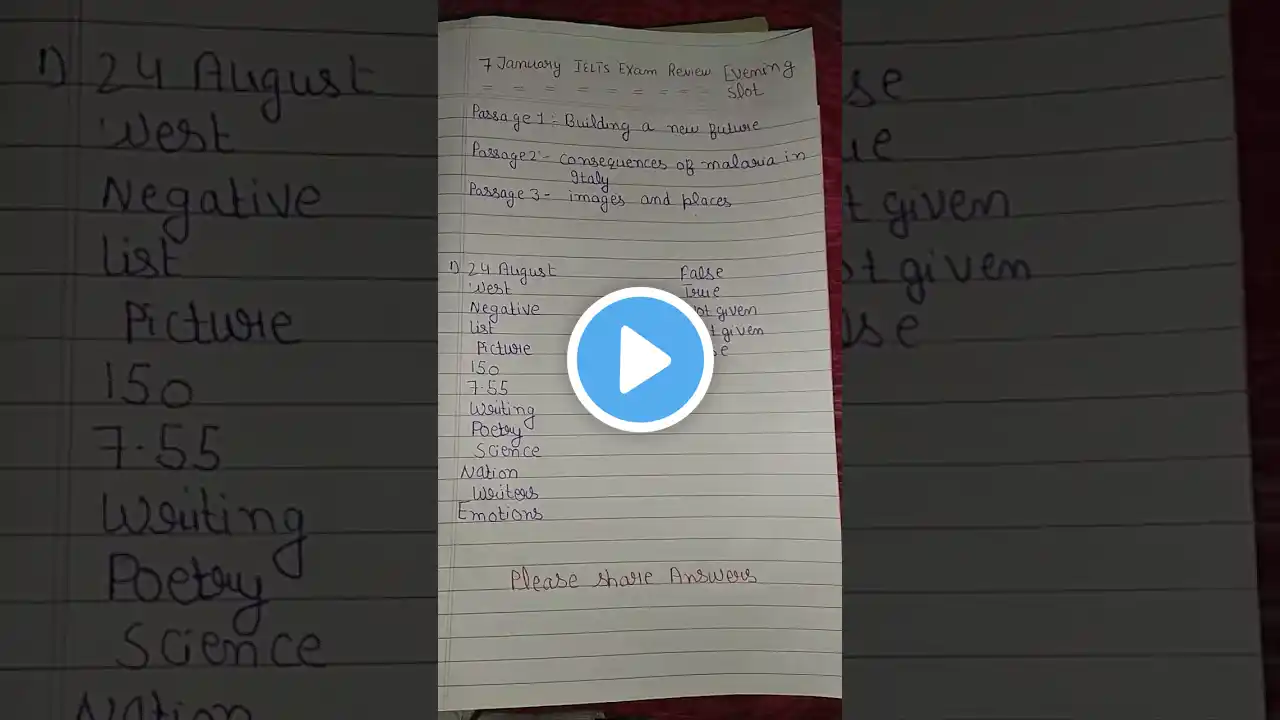 7 January IELTS Exam Review Evening slot
Passage 1:- Building a new future
Passage 2:- consequences of malaria in Italy
Passage 3- images and places
1) 24 August
West
Negative
List
Picture
150
7.55
Writing
Poetry
Science
Nation
Writers
Emotions
False
True
Not given
given
Please share Answers